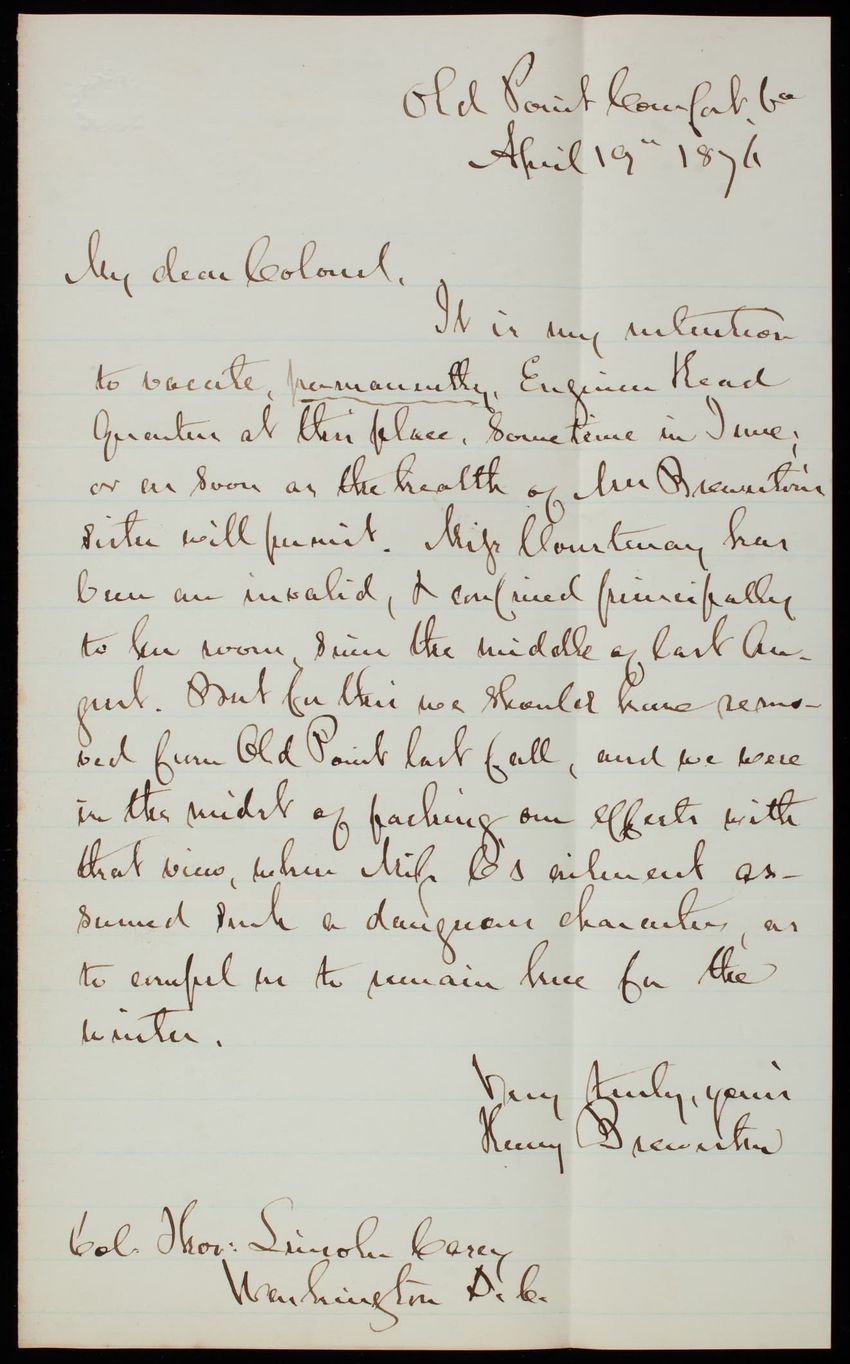 Old Point Comfort, Va
April 19" 1876
My dear Colonel,
It is my intention
to vacate, permanently, Engineer Head
Quarters at this place, sometime in June;
or as soon as the health of Mrs Brewerton's
sister will permit. Miss Courtenay has
been an invalid, & confined principally
to her room, since the middle of last Au-
gust. But for this we should have remo-
ved from Old Point last fall, and we were
in the midst of packing our effects with
that view, when Miss C's ailment as-
sumed such a dangerous character, as
to compel us to remain here for the
winter.
Very truly, yours
Henry Brewerton
Col. Thos: Lincoln Casey
Washington D.C.